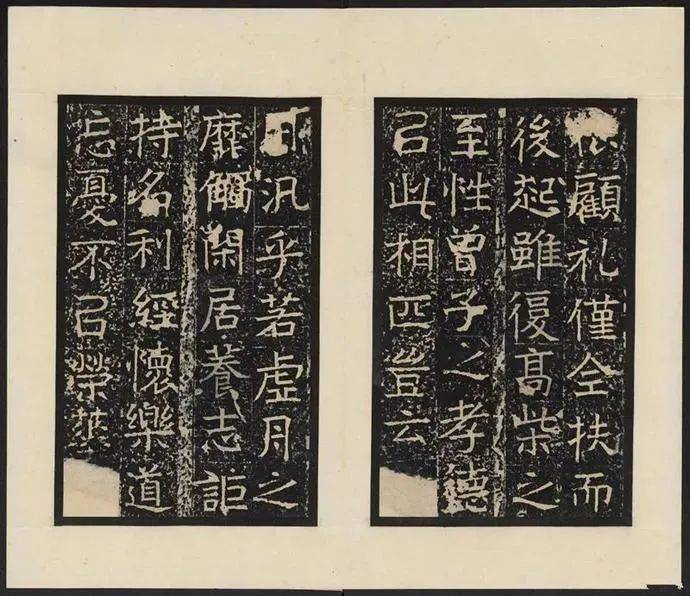 顧礼僅全扶而
後起雖復高柴之
至性曾子之孝德
㠯此相匹豈云
汎乎若虛舟之
靡觸閑居養志詎
持名利經懷樂道
忘憂不㠯榮